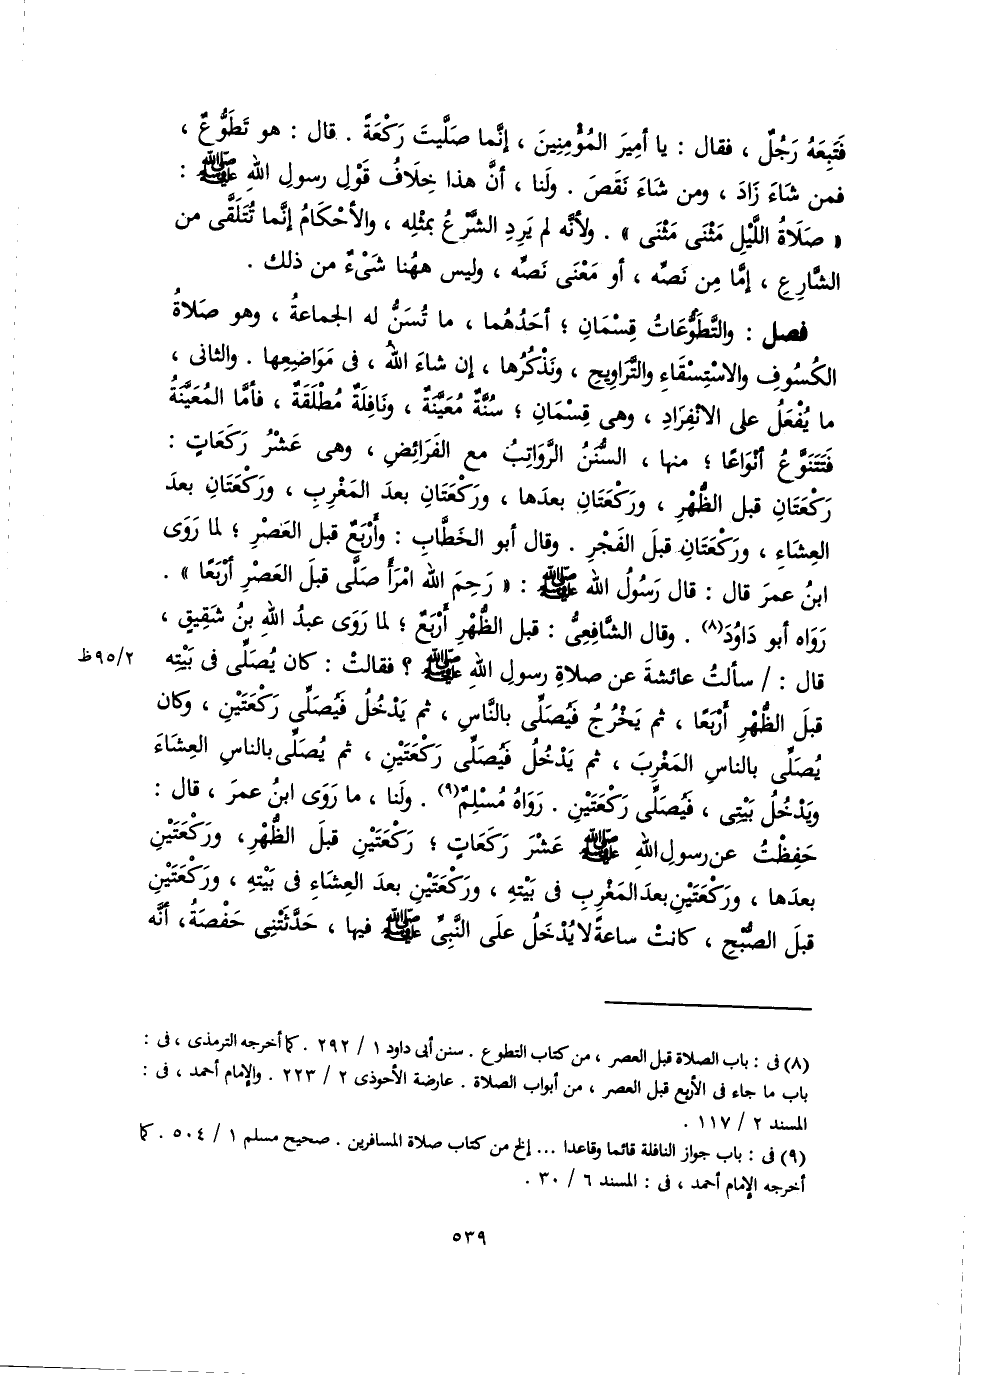 فَتَبِعَهُ رَجُلٌ ، فقال : يا أمِيرَ المُؤْمِنِينَ ، إنَّما صَلَّيتَ رَكْعَةً . قال : هو تَطَوُّعٌ ،
فمن شاءَ زَادَ ، ومن شاءَ نَقَصَ . ولَنا ، أنَّ هذا خِلَافُ قَوْلِ رسولِ اللهِ ﷺ :
« صَلَاةُ اللَّيْلِ مَثْنَى مَثْنَى » . ولأنَّه لم يَرِدِ الشَّرْعُ بمثْلِه ، والأحْكَامُ إنَّما تُتَلَقَّى من
الشَّارِعِ ، إمَّا مِن نَصِّه ، أو مَعْنَى نَصِّه ، وليس ههُنا شَىْءٌ من ذلك .
فصل : والتَّطَوُّعَاتُ قِسْمَانِ ؛ أحَدُهُما ، ما تُسَنُّ له الجماعةُ ، وهو صَلاةُ
الكُسُوفِ والاسْتِسْقَاءِ والتَّرَاوِيحِ ، ونَذْكُرُها ، إن شاءَ اللهُ ، فى مَوَاضِعِها . والثانى ،
ما يُفْعَلُ على الانْفِرَادِ ، وهى قِسْمَانِ ؛ سُنَّةٌ مُعَيَّنَةٌ ، ونَافِلَةٌ مُطْلَقَةٌ ، فأمَّا المُعَيَّنَةُ
فَتَتَنَوَّعُ أنْوَاعًا ؛ منها ، السُّنَنُ الرَّوَاتِبُ مع الفَرَائِضِ ، وهى عَشْرُ رَكَعَاتٍ :
رَكْعَتَانِ قبل الظُّهْرِ ، ورَكْعَتَانِ بعدَها ، ورَكْعَتَانِ بعدَ المَغْرِبِ ، ورَكْعَتَانِ بعدَ
العِشَاءِ ، ورَكْعَتَانِ قبلَ الفَجْرِ . وقال أبو الخَطَّابِ : وأَرْبَعٌ قبل العَصْرِ ؛ لما رَوَى
ابنُ عمرَ قال : قال رَسُولُ الله ﷺ : « رَحِمَ الله امْرَأً صَلَّى قبلَ العَصْرِ أرْبَعًا » .
رَوَاه أبو دَاوُدَ(٨) . وقال الشَّافِعِىُّ : قبل الظُّهْرِ أرْبَعٌ ؛ لما رَوَى عبدُ اللهِ بنُ شَقِيقٍ ،
قال : / سألتُ عائشةَ عن صلاةِ رسولِ اللهِ ﷺ ؟ فقالتْ : كان يُصَلِّى فى بَيْتِه
٩٥/٢ظ
قبلَ الظُّهْرِ أَرْبَعًا ، ثم يَخْرُجُ فَيُصَلِّى بالنَّاسِ ، ثم يَدْخُلُ فَيُصَلِّى رَكْعَتَيْنِ ، وكان
يُصَلِّى بالناسِ المَغْرِبَ ، ثم يَدْخُلُ فَيُصَلِّى رَكْعَتَيْنِ ، ثم يُصَلِّى بالناسِ العِشَاءَ
ويَدْخُلُ بَيْتِى ، فَيُصَلِّى رَكْعَتَيْنِ . رَوَاهُ مُسْلِمٌ(٩) . ولَنا ، ما رَوَى ابنُ عمرَ ، قال :
حَفِظْتُ عن رسولِ اللهِ ﷺ عَشْرَ رَكَعَاتٍ ؛ رَكْعَتَيْنِ قبلَ الظُّهْرِ ، ورَكْعَتَيْنِ
بعدَها ، ورَكْعَتَيْنِ بعدَ المَغْرِبِ فى بَيْتِهِ ، ورَكْعَتَيْنِ بعدَ العِشَاءِ فى بَيْتِهِ ، ورَكْعَتَيْنِ
قبلَ الصُّبْحِ ، كانتْ ساعةً لا يُدْخَلُ علَى النَّبِىِّ ﷺ فيها ، حَدَّثَتْنِى حَفْصَةُ ، أنَّه
(٨) فى : باب الصلاة قبل العصر ، من كتاب التطوع . سنن أبى داود ١ / ٢٩٢ . كما أخرجه الترمذى ، فى :
باب ما جاء فى الأربع قبل العصر ، من أبواب الصلاة . عارضة الأحوذى ٢ / ٢٢٣ . والإمام أحمد ، فى :
المسند ٢ / ١١٧ .
(٩) فى : باب جواز النافلة قائما وقاعدا ... إلخ من كتاب صلاة المسافرين . صحيح مسلم ١ / ٥٠٤ . كما
أخرجه الإمام أحمد ، فى : المسند ٦ / ٣٠ .
٥٣٩